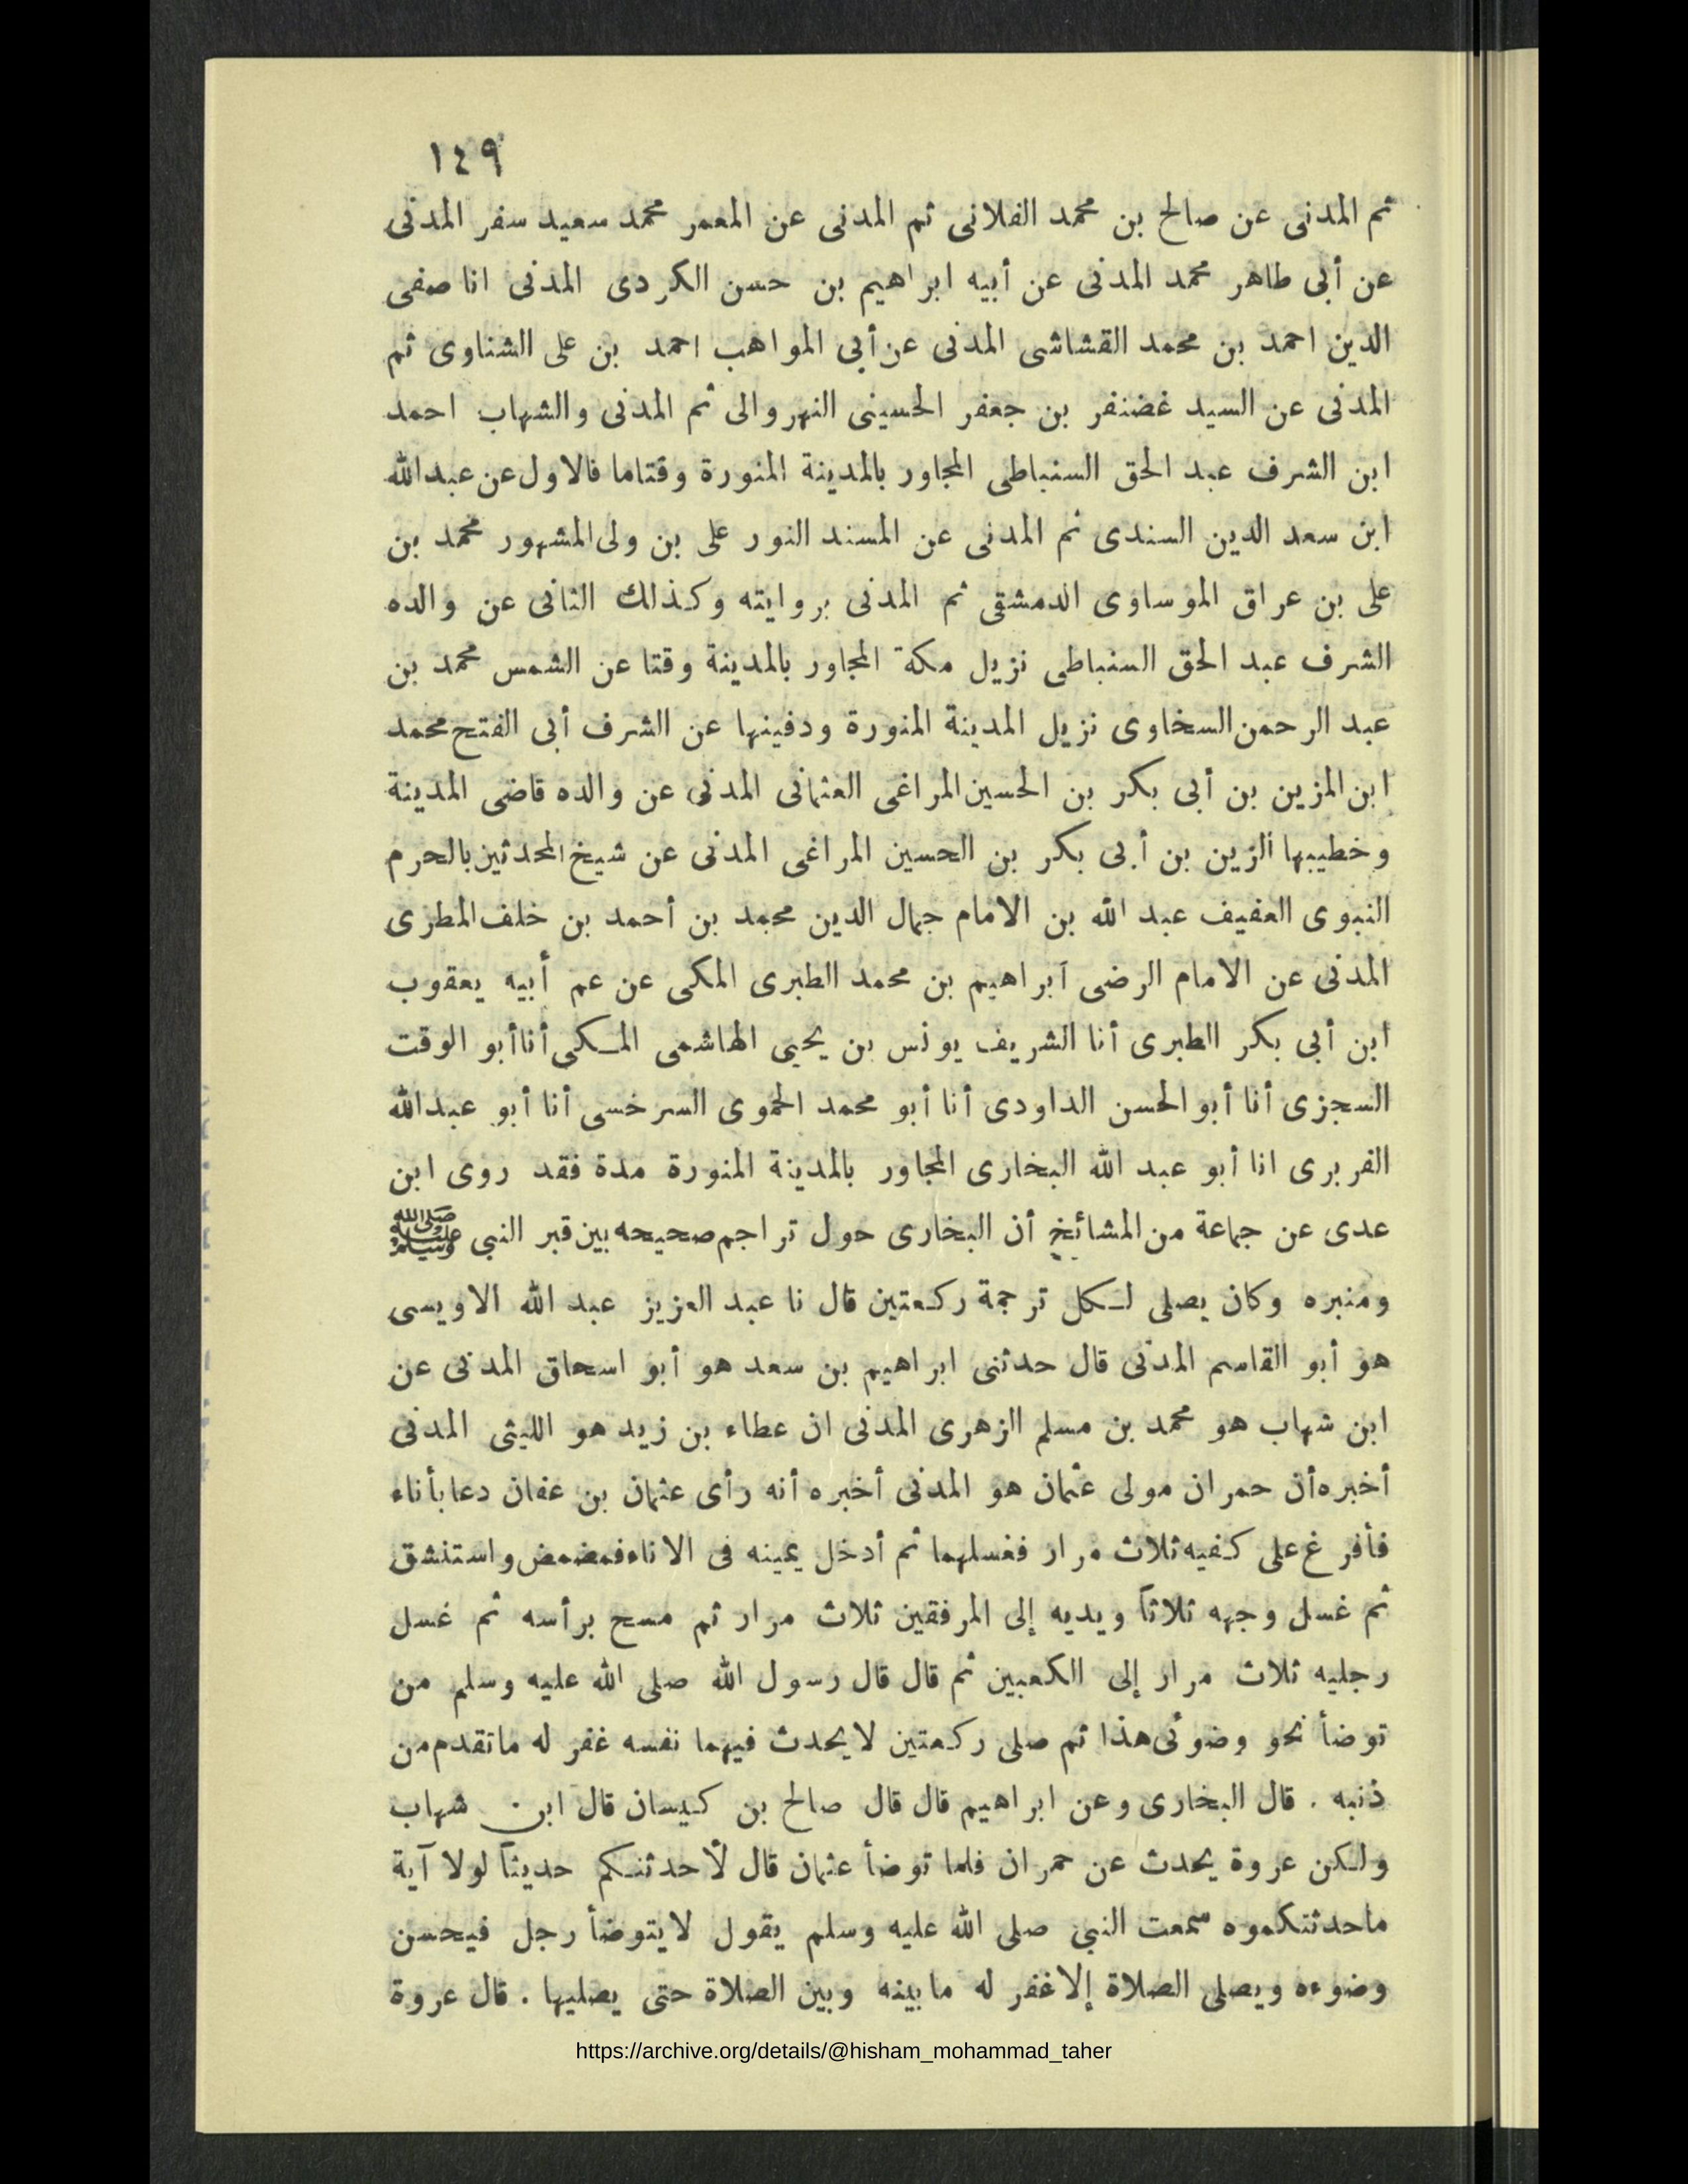 ١٤٩
ثم المدنى عن صالح بن محمد الفلانى ثم المدنى عن المعمر محمد سعيد سفر المدنى
عن أبى طاهر محمد المدنى عن أبيه ابراهيم بن حسن الكردى المدنى انا صفى
الدين احمد بن محمد القشاشى المدنى عن أبى المواهب احمد بن على الشناوى ثم
المدنى عن السيد غضنفر بن جعفر الحسينى النهروالى ثم المدنى والشهاب احمد
ابن الشرف عبد الحق السنباطى المجاور بالمدينة المنورة وقتاما فالاول عن عبدالله
ابن سعد الدين السندى ثم المدنى عن المسند النور على بن ولى المشهور محمد بن
على بن عراق الموساوى الدمشقى ثم المدنى بروايته وكذلك الثانى عن والده
الشرف عبد الحق السنباطى نزيل مكة المجاور بالمدينة وقتا عن الشمس محمد بن
عبد الرحمن السخاوى نزيل المدينة المنورة ودفينها عن الشرف أبى الفتح محمد
ابن المزين بن أبى بكر بن الحسين المراغى العثمانى المدنى عن والده قاضى المدينة
وخطيبها الزين بن أبى بكر بن الحسين المراغى المدنى عن شيخ المحدثين بالحرم
النبوى العفيف عبد الله بن الامام جمال الدين محمد بن أحمد بن خلف المطرى
المدنى عن الامام الرضى ابراهيم بن محمد الطبرى المكى عن عم أبيه يعقوب
ابن أبى بكر الطبرى أنا الشريف يونس بن يحيى الهاشمى المكى أنا أبو الوقت
السجزى أنا أبو الحسن الداودى أنا أبو محمد الحموى السرخسى أنا أبو عبدالله
الفربرى انا أبو عبد الله البخارى المجاور بالمدينة المنورة مدة فقد روى ابن
عدى عن جماعة من المشائخ أن البخارى حول تراجم صحيحه بين قبر النبى ﷺ
ومنبره وكان يصلى لكل ترجمة ركعتين قال نا عبد العزيز عبد الله الاويسى
هو أبو القاسم المدنى قال حدثنى ابراهيم بن سعد هو أبو اسحاق المدنى عن
ابن شهاب هو محمد بن مسلم الزهرى المدنى ان عطاء بن زيد هو الليثى المدنى
أخبره أن حمران مولى عثمان هو المدنى أخبره أنه رأى عثمان بن عفان دعا بأناء
فأفرغ على كفيه ثلاث مرار فغسلهما ثم أدخل يمينه فى الاناء فمضمض واستنشق
ثم غسل وجهه ثلاثاً ويديه إلى المرفقين ثلاث مرار ثم مسح برأسه ثم غسل
رجليه ثلاث مرار إلى الكعبين ثم قال قال رسول الله صلى الله عليه وسلم من
توضأ نحو وضوئى هذا ثم صلى ركعتين لا يحدث فيهما نفسه غفر له ماتقدم من
ذنبه . قال البخارى وعن ابراهيم قال قال صالح بن كيسان قال ابن شهاب
ولكن عروة يحدث عن حمران فلما توضأ عثمان قال لأحدثنكم حديثاً لولا آية
ماحدثتكموه سمعت النبى صلى الله عليه وسلم يقول لايتوضأ رجل فيحسن
وضوءه ويصلى الصلاة إلا غفر له مابينه وبين الصلاة حتى يصليها . قال عروة
https://archive.org/details/@hisham_mohammad_taher